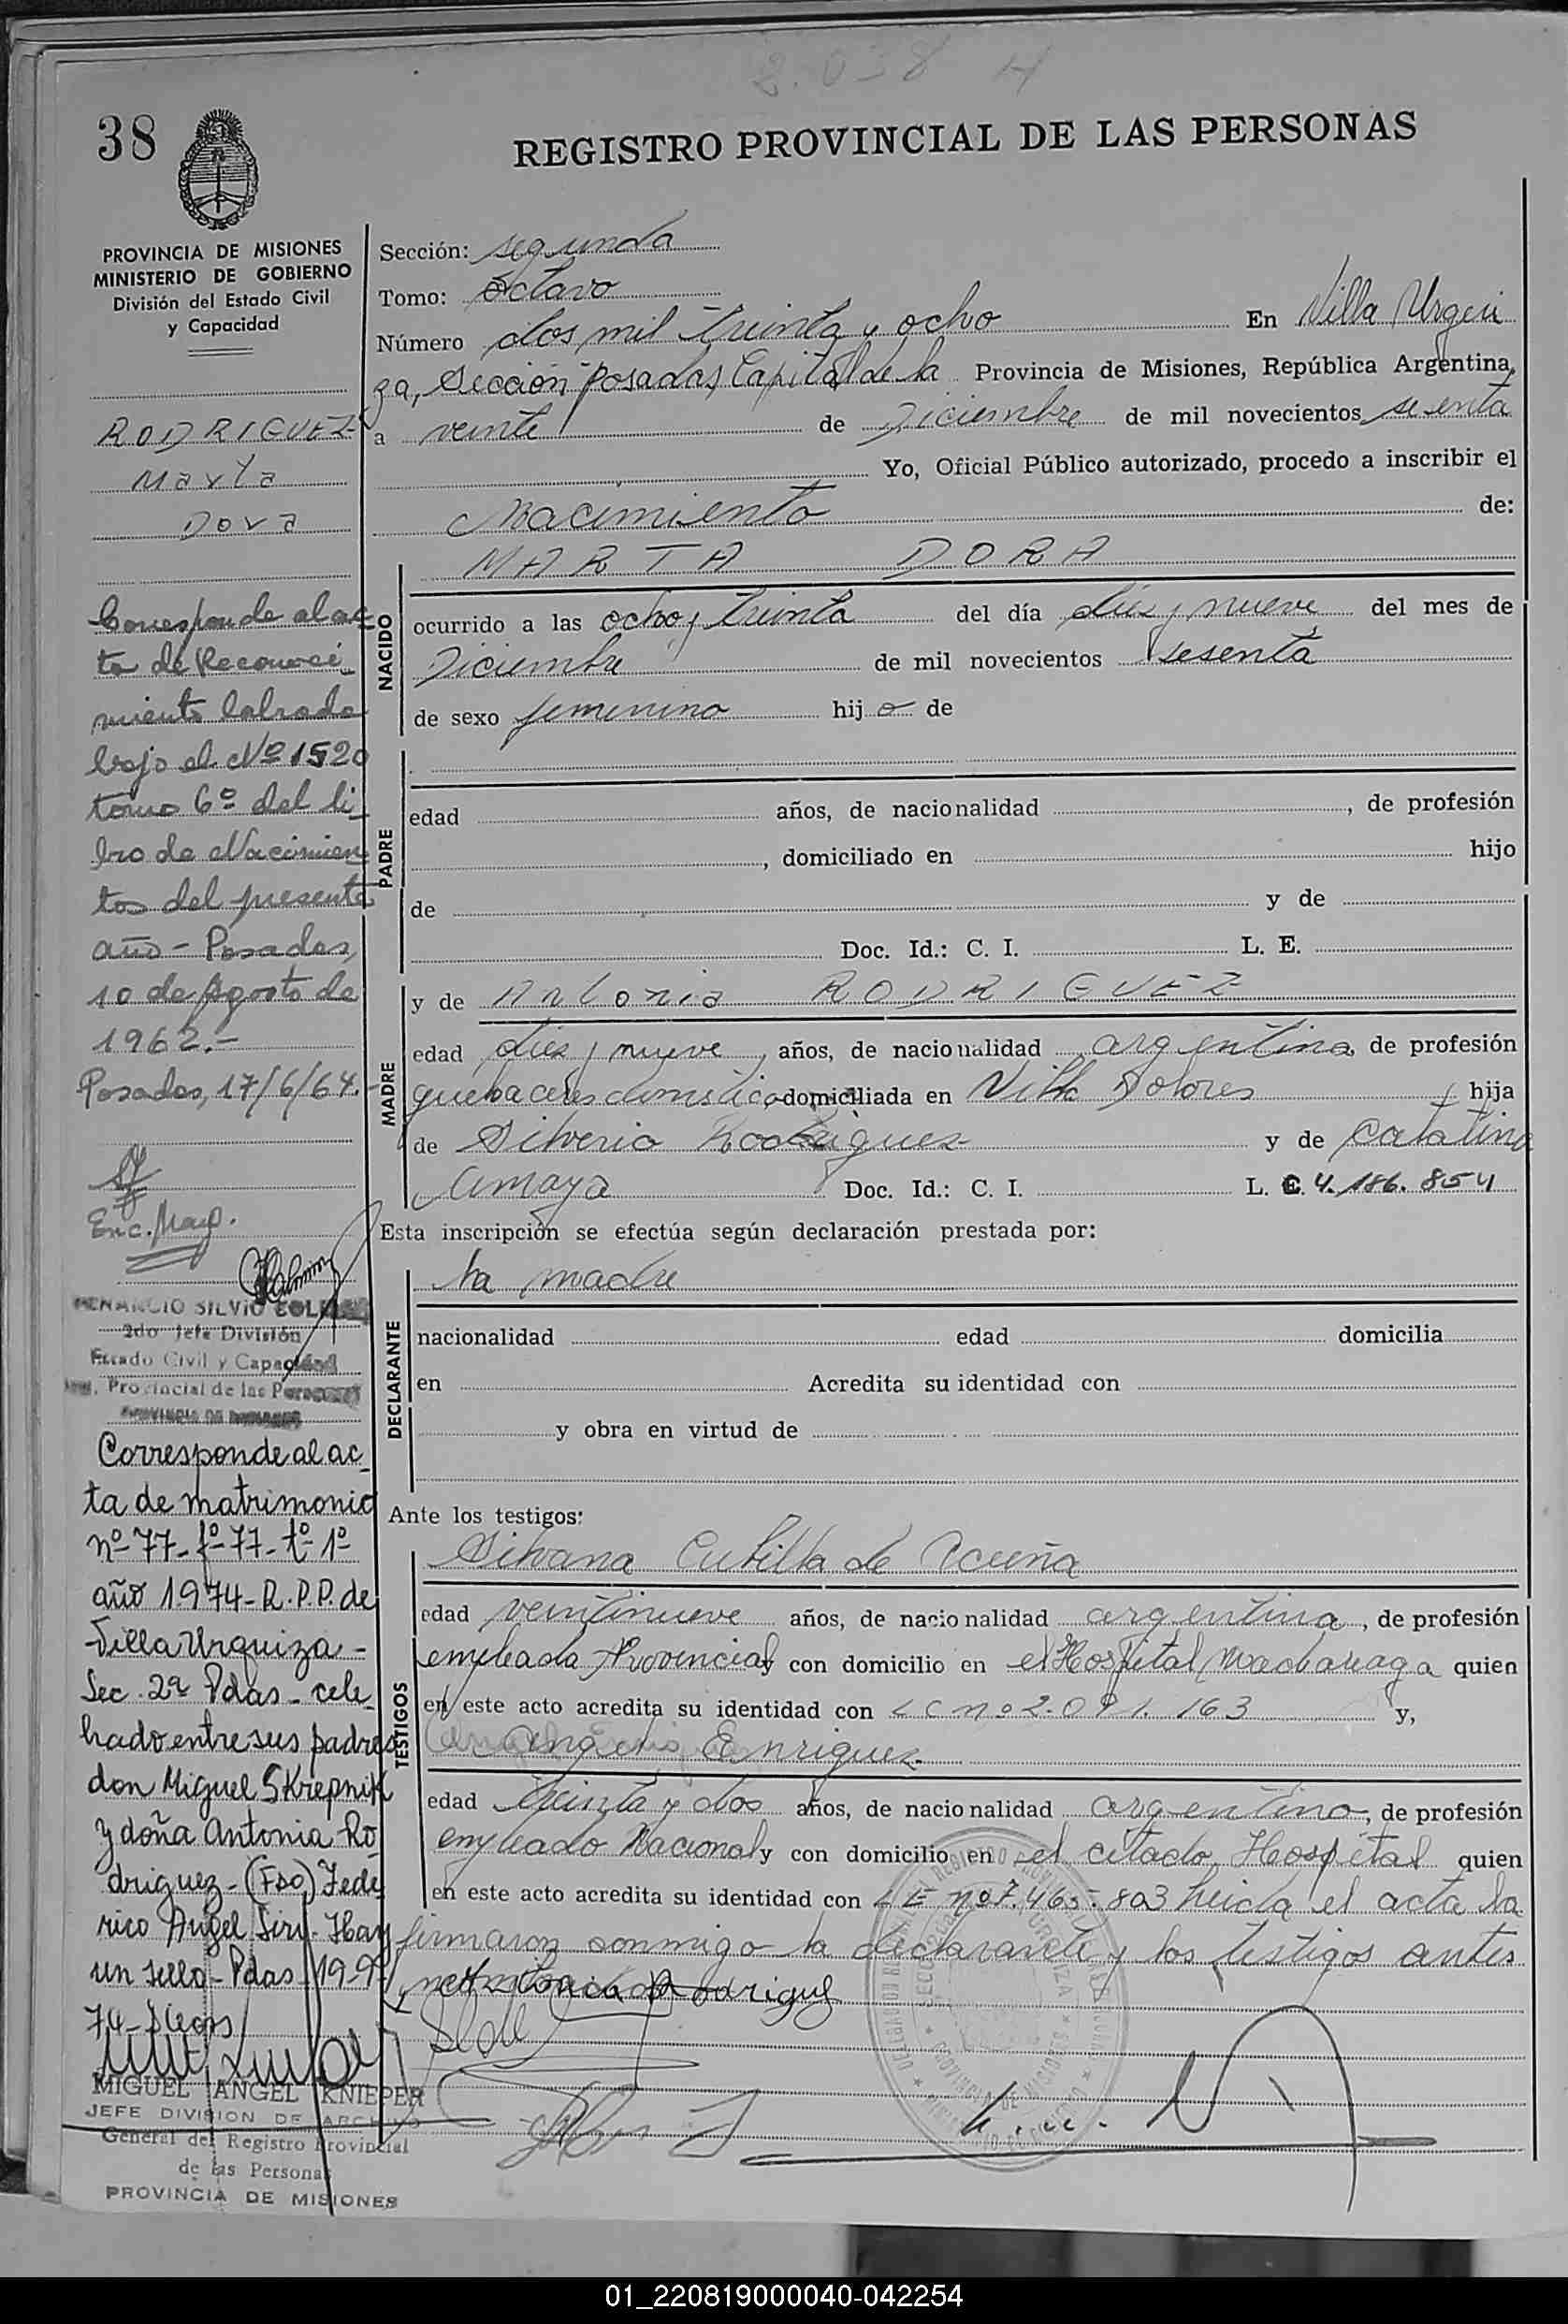 2.038 H
38
REGISTRO PROVINCIAL DE LAS PERSONAS
PROVINCIA DE MISIONES
MINISTERIO DE GOBIERNO
División del Estado Civil
y Capacidad
RODRIGUEZ
Marta
Dora
Corresponde al ac
ta de Reconoci
miento labrada
bajo el Nº 1520
tomo 6º del li
bro de Nacimien
tos del presente
año - Posadas,
10 de Agosto de
1962.-
Posadas, 17/6/64.-
Enc. Mayo.
2do Jefe División
Estado Civil y Capacidad
Provincial de las Personas
PROVINCIA DE MISIONES
Corresponde al ac
ta de matrimonio
nº 77- fº 77- tº 1º
año 1974- R.P.P. de
Villa Urquiza -
Sec. 2ª Pdas - cele
brado entre sus padres
don Miguel Skrepnik
y doña Antonia Ro
driguez - (Fdo) Fede
rico Angel Siry - Hay
un sello - Pdas 19-9-
74-
MIGUEL ANGEL KNIEPER
JEFE DIVISION DE ARCHIVO
General del Registro Provincial
de las Personas
PROVINCIA DE MISIONES
Sección: segunda
Tomo: octavo
Número dos mil treinta y ocho En Villa Urqui
za, Sección Posadas, Capital de la Provincia de Misiones, República Argentina,
a veinte de Diciembre de mil novecientos sesenta
Yo, Oficial Público autorizado, procedo a inscribir el
Nacimiento de:
NACIDO
MARTA DORA
ocurrido a las ocho y treinta del día diez y nueve del mes de
Diciembre de mil novecientos sesenta
de sexo femenino hij a de
PADRE
edad años, de nacionalidad , de profesión
, domiciliado en hijo
de y de
Doc. Id.: C. I. L. E.
MADRE
y de Antonia RODRIGUEZ
edad diez y nueve, años, de nacionalidad argentina de profesión
quehaceres domésticos domiciliada en Villa Dolores hija
de Silverio Rodriguez y de Catalina
Amaya Doc. Id.: C. I. L. C. 4.186.854
Esta inscripción se efectúa según declaración prestada por:
DECLARANTE
la madre
nacionalidad edad domicilia
en Acredita su identidad con
y obra en virtud de
Ante los testigos:
TESTIGOS
Silvana Cubilla de Acuña
edad veintinueve años, de nacionalidad argentina, de profesión
empleada Provincial con domicilio en el Hospital Madariaga quien
en este acto acredita su identidad con LC nº 2.091.163 y,
Enriquez
edad treinta y dos años, de nacionalidad argentino, de profesión
empleado Nacional y con domicilio en el citado Hospital quien
en este acto acredita su identidad con LE nº 7.465.803 leida el acta la
firmaron conmigo la declarante y los testigos antes
Antonia Rodriguez
01_220819000040-042254